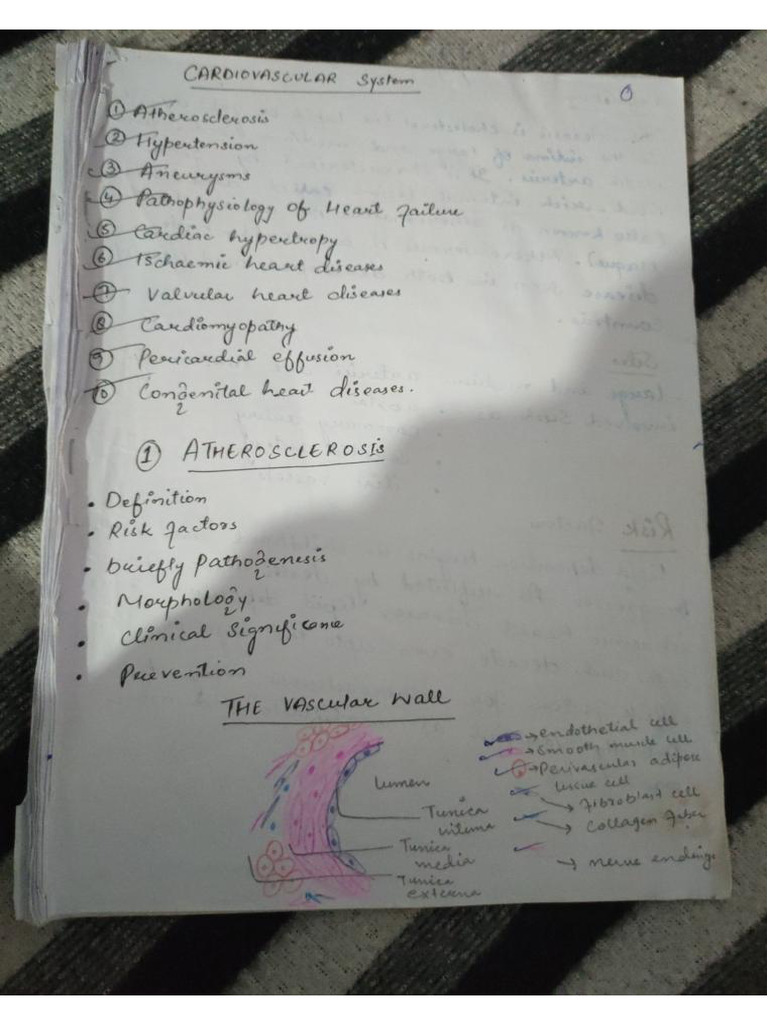 CARDIOVASCULAR System
① Atherosclerosis
② Hypertension
③ Aneurysms
④ Pathophysiology of Heart Failure
⑤ Cardiac hypertropy
⑥ Ischaemic heart diseases
⑦ Valvular heart diseases
⑧ Cardiomyopathy
⑨ Pericardial effusion
⑩ Congenital heart diseases.
① ATHEROSCLEROSIS
• Definition
• Risk factors
• Briefly Pathogenesis
• Morphology
• Clinical Significance
• Prevention
THE VASCULAR Wall
→ endothetial cell
→ Smooth muscle cell
→ Perivascular adipose
tissue cell
→ Fibroblast cell
→ Collagen fiber
→ nerve endings
Lumen
Tunica
intima
Tunica
media
Tunica
externa